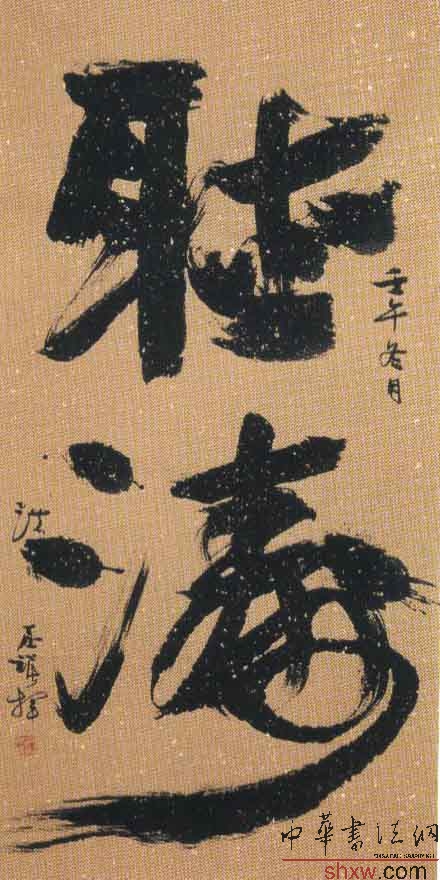 聽濤
壬午冬月
中華書法網
shxw.com